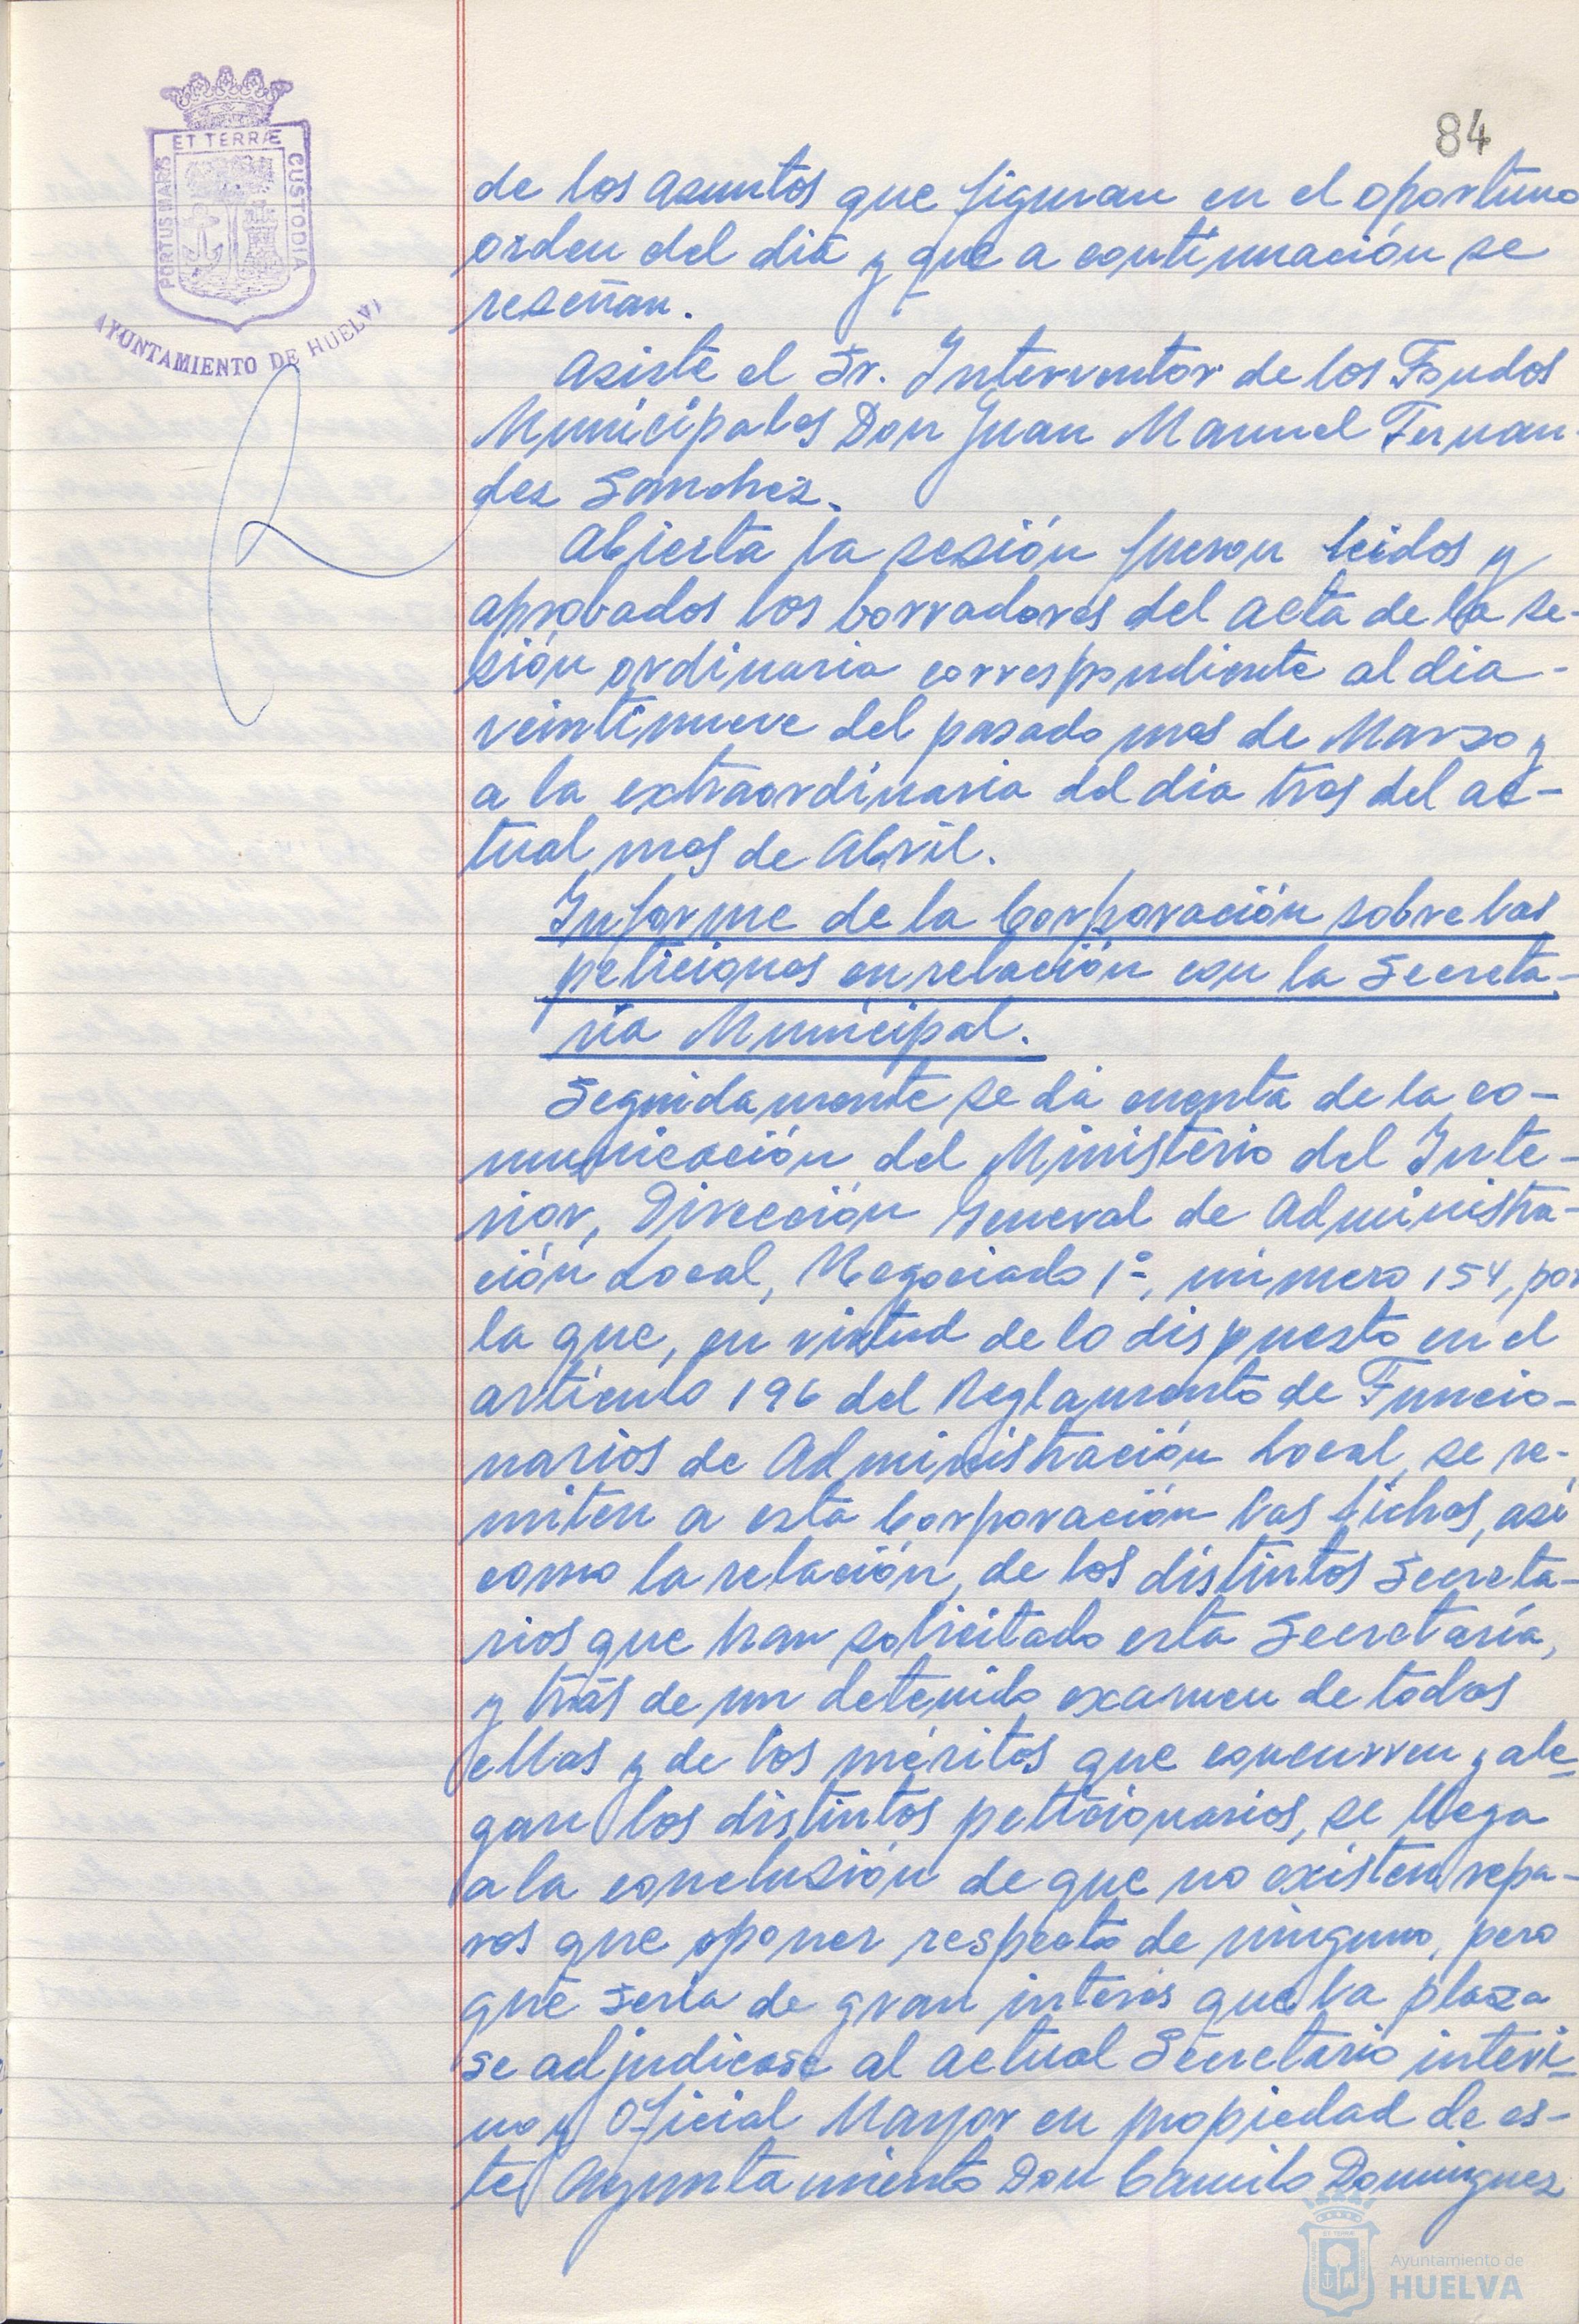 84
ET TERRÆ
PORTUS MARIS
CUSTODIA
AYUNTAMIENTO DE HUELVA
de los asuntos que figuran en el oportuno
orden del dia y que a continuación se
reseñan.
Asiste el Sr. Interventor de los Fondos
Municipales Don Juan Manuel Fernan-
dez Sanchez.
Abierta la sesión fueron leidos y
aprobados los borradores del acta de la se-
sión ordinaria correspondiente al dia -
veintinueve del pasado mes de Marzo y
a la extraordinaria del dia tres del ac-
tual mes de Abril.
Informe de la Corporación sobre las
peticiones en relación con la Secreta-
ria Municipal.
Seguidamente se da cuenta de la co-
municación del Ministerio del Inte-
rior, Dirección General de Administra-
ción Local, Negociado 1º, número 154, por
la que, en virtud de lo dispuesto en el
artículo 196 del Reglamento de Funcio-
narios de Administración Local, se re-
miten a esta Corporación las fichas, asi
como la relación, de los distintos Secreta-
rios que han solicitado esta Secretaría,
y trás de un detenido examen de todas
ellas y de los méritos que concurren y ale-
gan los distintos peticionarios, se llega
a la conclusión de que no existen repa-
ros que oponer respecto de ninguno, pero
que seria de gran interés que la plaza
se adjudicase al actual Secretario interi-
no y Oficial Mayor en propiedad de es-
te Ayuntamiento Don Camilo Dominguez
Ayuntamiento de
HUELVA